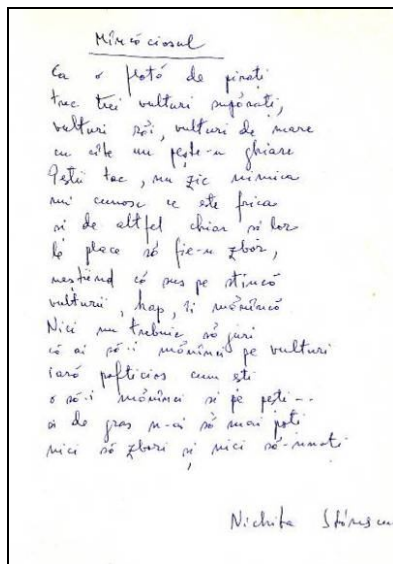 Mîncăciosul
Ca o flotă de pirați
trec trei vulturi supărați,
vulturi răi, vulturi de mare
cu cîte un pește-n ghiare
Peștii tac, nu zic nimica
nu cunosc ce este frica
și de altfel chiar și lor
le place să fie-n zbor,
neștiind că sus pe stîncă
vulturii, hap, îi mănîncă
Nici nu trebuie să juri
că ai să-i mănînci pe vulturi
iară pofticios cum ești
o să-i mănînci și pe pești...
și de gras n-ai să mai poți
nici să zbori și nici să-nnoți
Nichita Stănescu